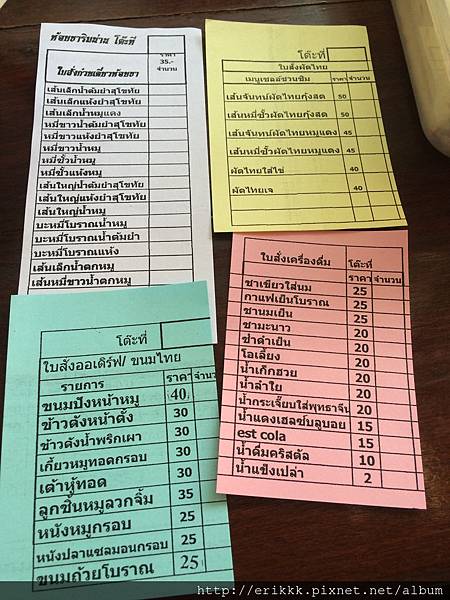 ห้อยขาริมน่าน โต๊ะที่
ใบสั่งก๋วยเตี๋ยวห้อยขา
ราคา
35.-
จำนวน
เส้นเล็กน้ำต้มยำสุโขทัย
เส้นเล็กแห้งยำสุโขทัย
เส้นเล็กน้ำหมูแดง
หมี่ขาวน้ำต้มยำสุโขทัย
หมี่ขาวแห้งยำสุโขทัย
หมี่ขาวน้ำหมู
หมี่ขั้วน้ำหมู
หมี่ขั้วแห้งหมู
เส้นใหญ่น้ำต้มยำสุโขทัย
เส้นใหญ่แห้งยำสุโขทัย
เส้นใหญ่น้ำหมู
บะหมี่โบราณน้ำหมู
บะหมี่โบราณน้ำต้มยำ
บะหมี่โบราณแห้ง
เส้นเล็กน้ำตกหมู
เส้นหมี่ขาวน้ำตกหมู
โต๊ะที่
ใบสั่งผัดไทย
เมนูเชลล์ชวนชิม ราคา จำนวน
เส้นจันทน์ผัดไทยกุ้งสด 50
เส้นหมี่ขั้วผัดไทยกุ้งสด 50
เส้นจันทน์ผัดไทยหมูแดง 45
เส้นหมี่ขั้วผัดไทยหมูแดง 45
ผัดไทยใส่ไข่ 40
ผัดไทยเจ 40
โต๊ะที่
ใบสั่งออเดิร์ฟ/ ขนมไทย
รายการ ราคา จำนวน
ขนมปังหน้าหมู 40
ข้าวตังหน้าตั้ง 30
ข้าวตังน้ำพริกเผา 30
เกี้ยวหมูทอดกรอบ 30
เต้าหู้ทอด 30
ลูกชิ้นหมูลวกจิ้ม 35
หนังหมูกรอบ 25
หนังปลาแซลมอนกรอบ 25
ขนมถ้วยโบราณ 25
ใบสั่งเครื่องดื่ม โต๊ะที่
ราคา จำนวน
ชาเขียวใส่นม 25
กาแฟเย็นโบราณ 25
ชานมเย็น 25
ชามะนาว 20
ชาดำเย็น 20
โอเลี้ยง 20
น้ำเก็กฮวย 20
น้ำลำใย 20
น้ำกระเจี๊ยบใส่พุทธาจีน 20
น้ำแดงเฮลซ์บลูบอย 15
est cola 15
น้ำดื่มคริสตัล 10
น้ำแข็งเปล่า 2
http://erikkk.pixnet.net/album